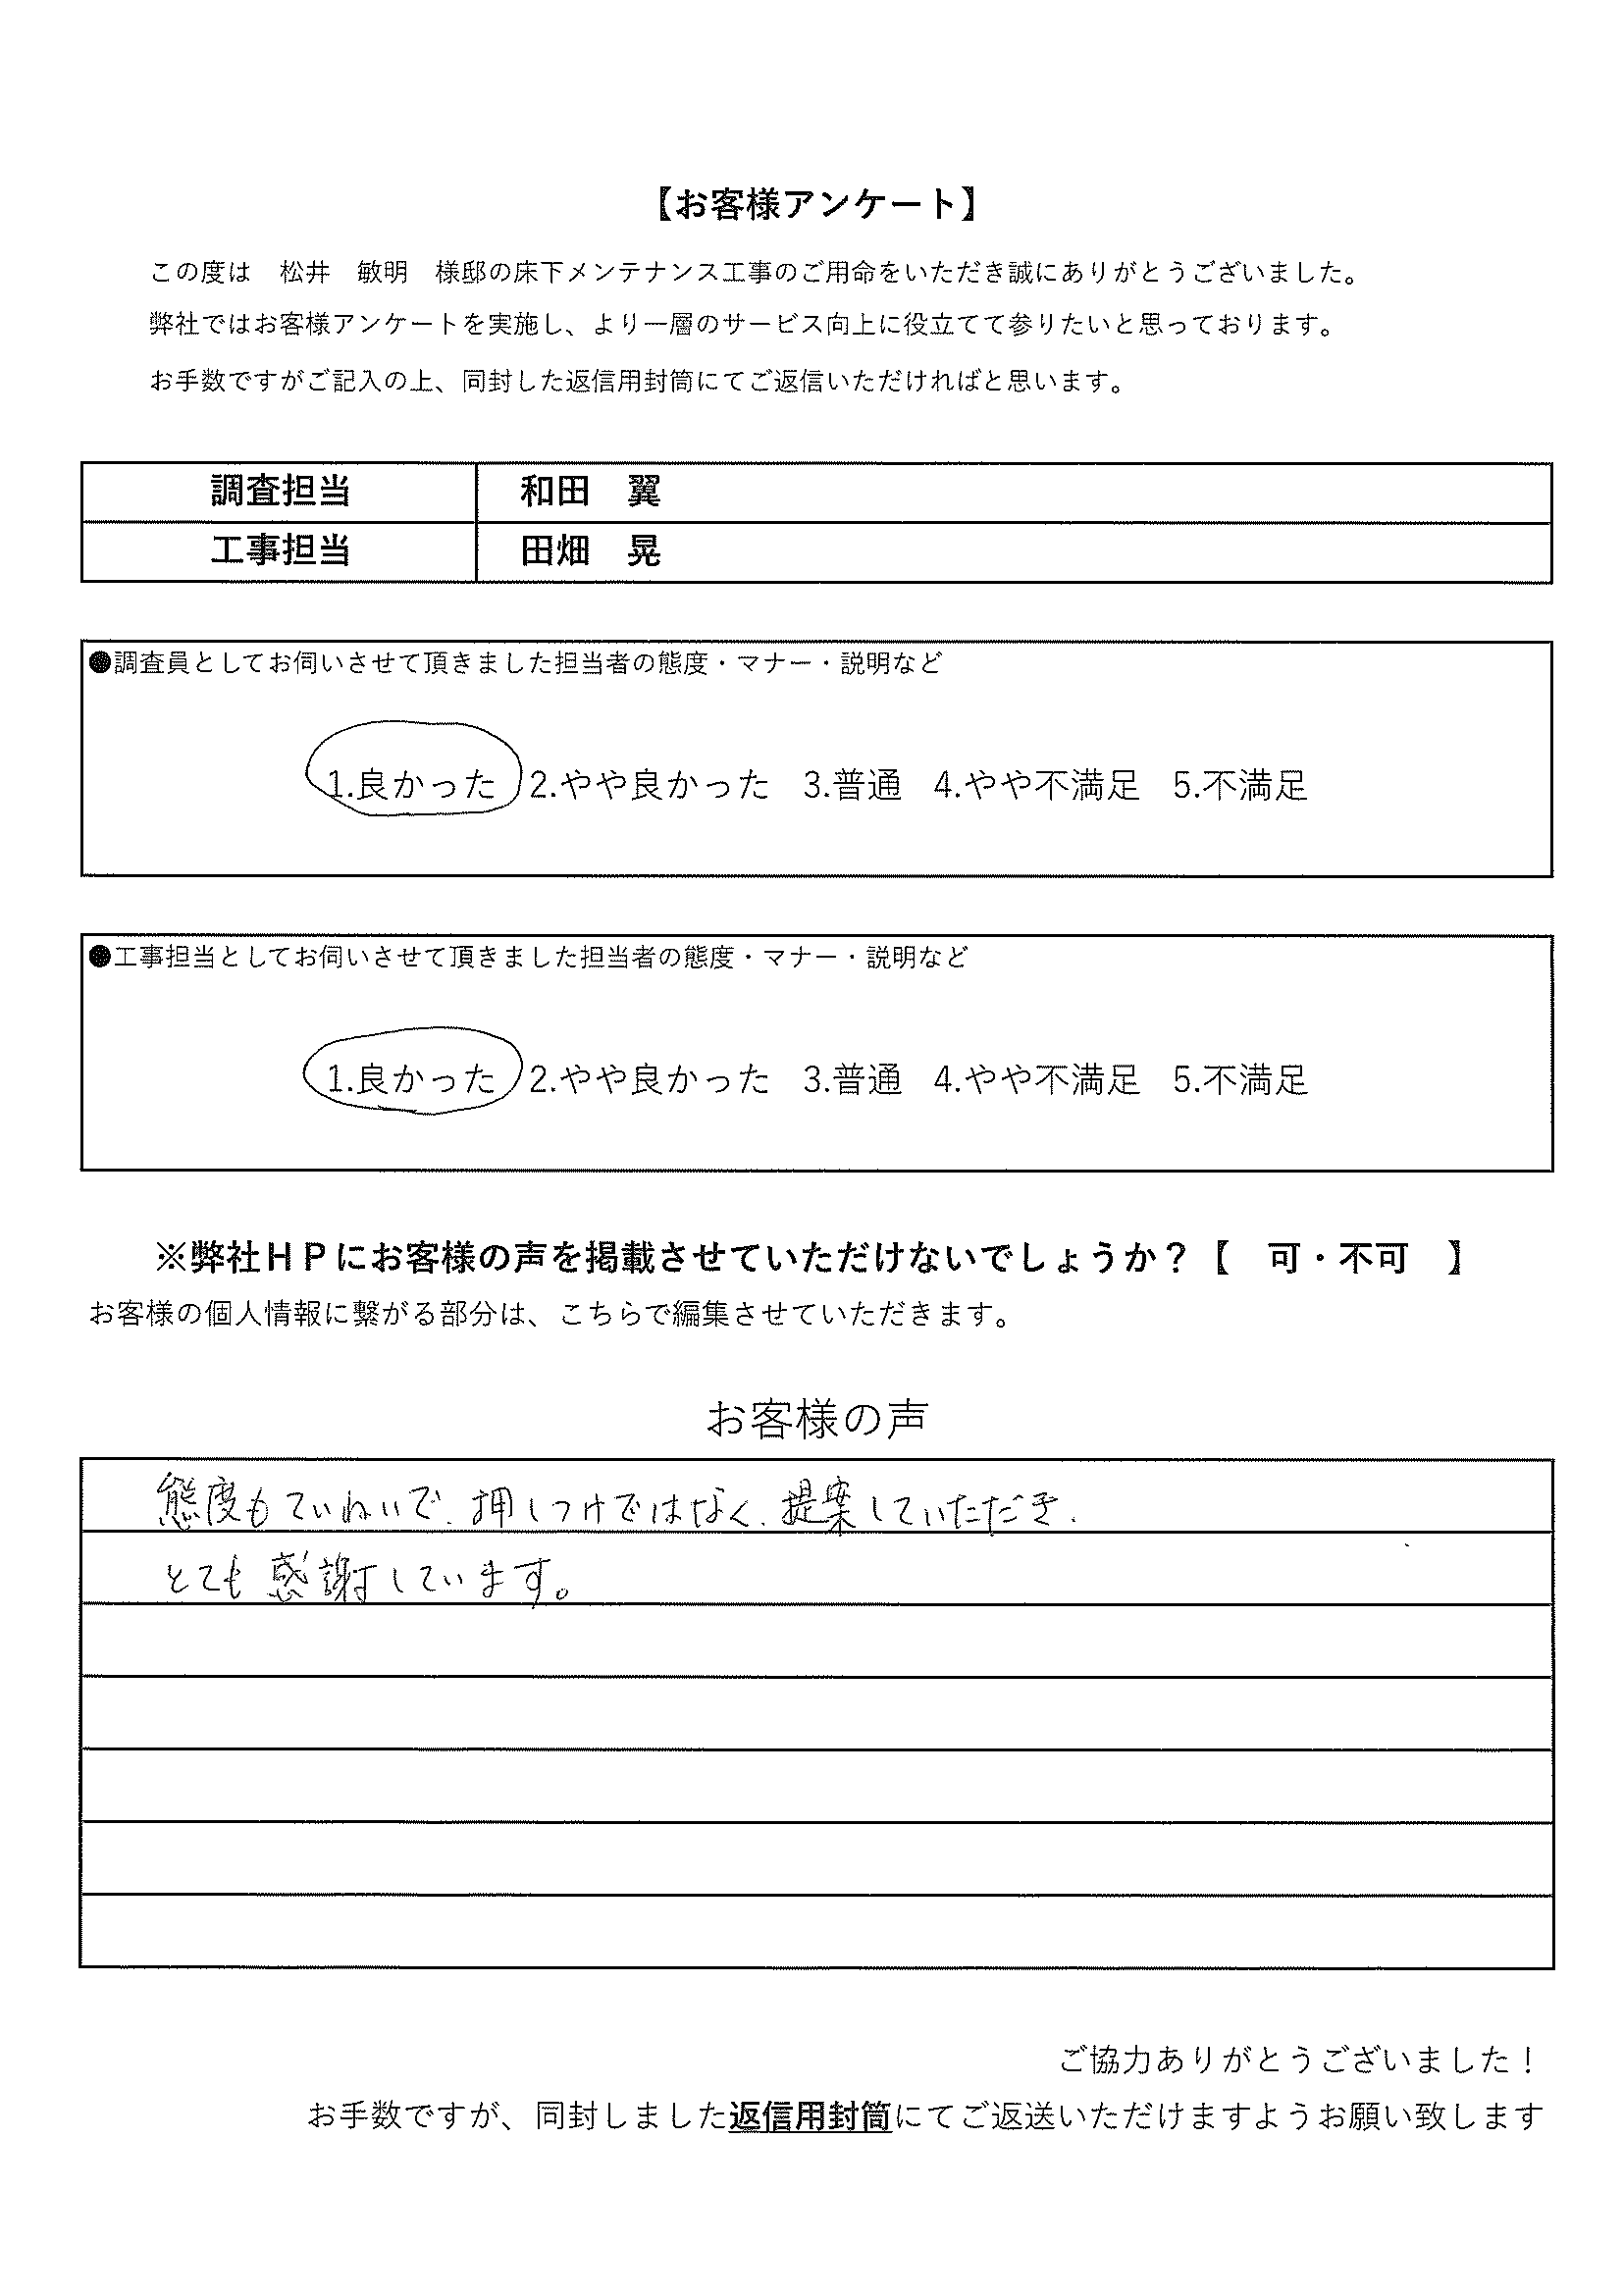 【お客様アンケート】
この度は　松井　敏明　様邸の床下メンテナンス工事のご用命をいただき誠にありがとうございました。
弊社ではお客様アンケートを実施し、より一層のサービス向上に役立てて参りたいと思っております。
お手数ですがご記入の上、同封した返信用封筒にてご返信いただければと思います。
調査担当　和田　翼
工事担当　田畑　晃
●調査員としてお伺いさせて頂きました担当者の態度・マナー・説明など
1.良かった　2.やや良かった　3.普通　4.やや不満足　5.不満足
●工事担当としてお伺いさせて頂きました担当者の態度・マナー・説明など
1.良かった　2.やや良かった　3.普通　4.やや不満足　5.不満足
※弊社ＨＰにお客様の声を掲載させていただけないでしょうか？【　可・不可　】
お客様の個人情報に繋がる部分は、こちらで編集させていただきます。
お客様の声
態度もていねいで、押しつけではなく、提案していただき、
とても感謝しています。
ご協力ありがとうございました！
お手数ですが、同封しました返信用封筒にてご返送いただけますようお願い致します